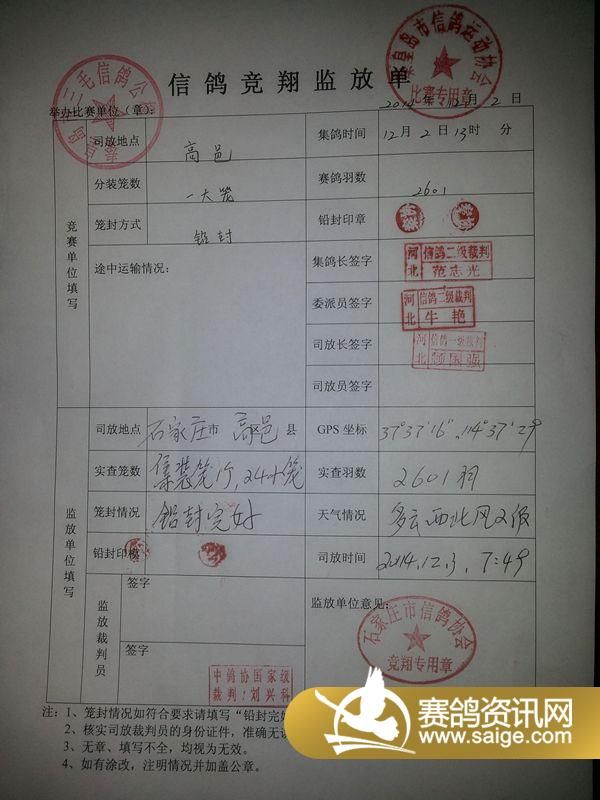 信鸽竞翔监放单
秦皇岛市信鸽运动协会
比赛专用章
三毛信鸽公棚
举办比赛单位（章）：
2014 年 12 月 2 日
竞赛单位填写
司放地点 高邑 集鸽时间 12月2日13时 分
分装笼数 一大笼 赛鸽羽数 2601
笼封方式 铅封 铅封印章
途中运输情况： 集鸽长签字 河北 信鸽二级裁判 范志光
委派员签字 河北 信鸽二级裁判 牛艳
司放长签字 河北 信鸽一级裁判 顾国强
司放员签字
监放单位填写
司放地点 石家庄市 高邑 县 GPS 坐标 37°37'16" 114°37'29
实查笼数 集装笼1个,24小笼 实查羽数 2601羽
笼封情况 铅封完好 天气情况 多云西北风2级
铅封印模 司放时间 2014.12.3, 7:49
监放裁判员 签字 监放单位意见：
石家庄市信鸽协会
竞翔专用章
签字
中鸽协国家级
裁判：刘兴科
注：1、笼封情况如符合要求请填写“铅封完好
2、核实司放裁判员的身份证件，准确无误
3、无章、填写不全，均视为无效。
4、如有涂改，注明情况并加盖公章。
赛鸽资讯网
www.saige.com